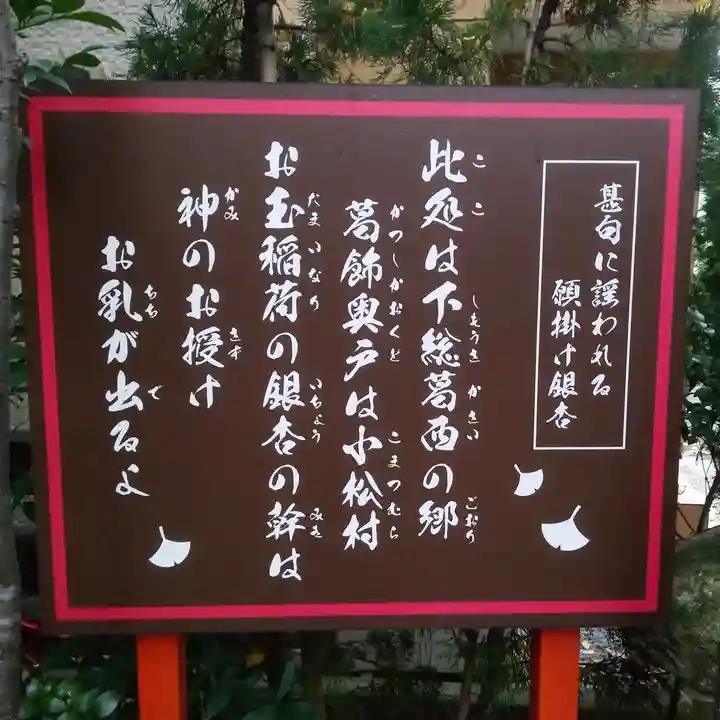 甚句に謡われる
願掛け銀杏
此処は下総葛西の郷
葛飾奥戸は小松村
お玉稲荷の銀杏の幹は
神のお授け
お乳が出るよ
ここ
しもうさ
かさい
ごおり
かつしかおくど
こまつむら
だまいなり
いちょう
みき
かみ
さず
ちち
で